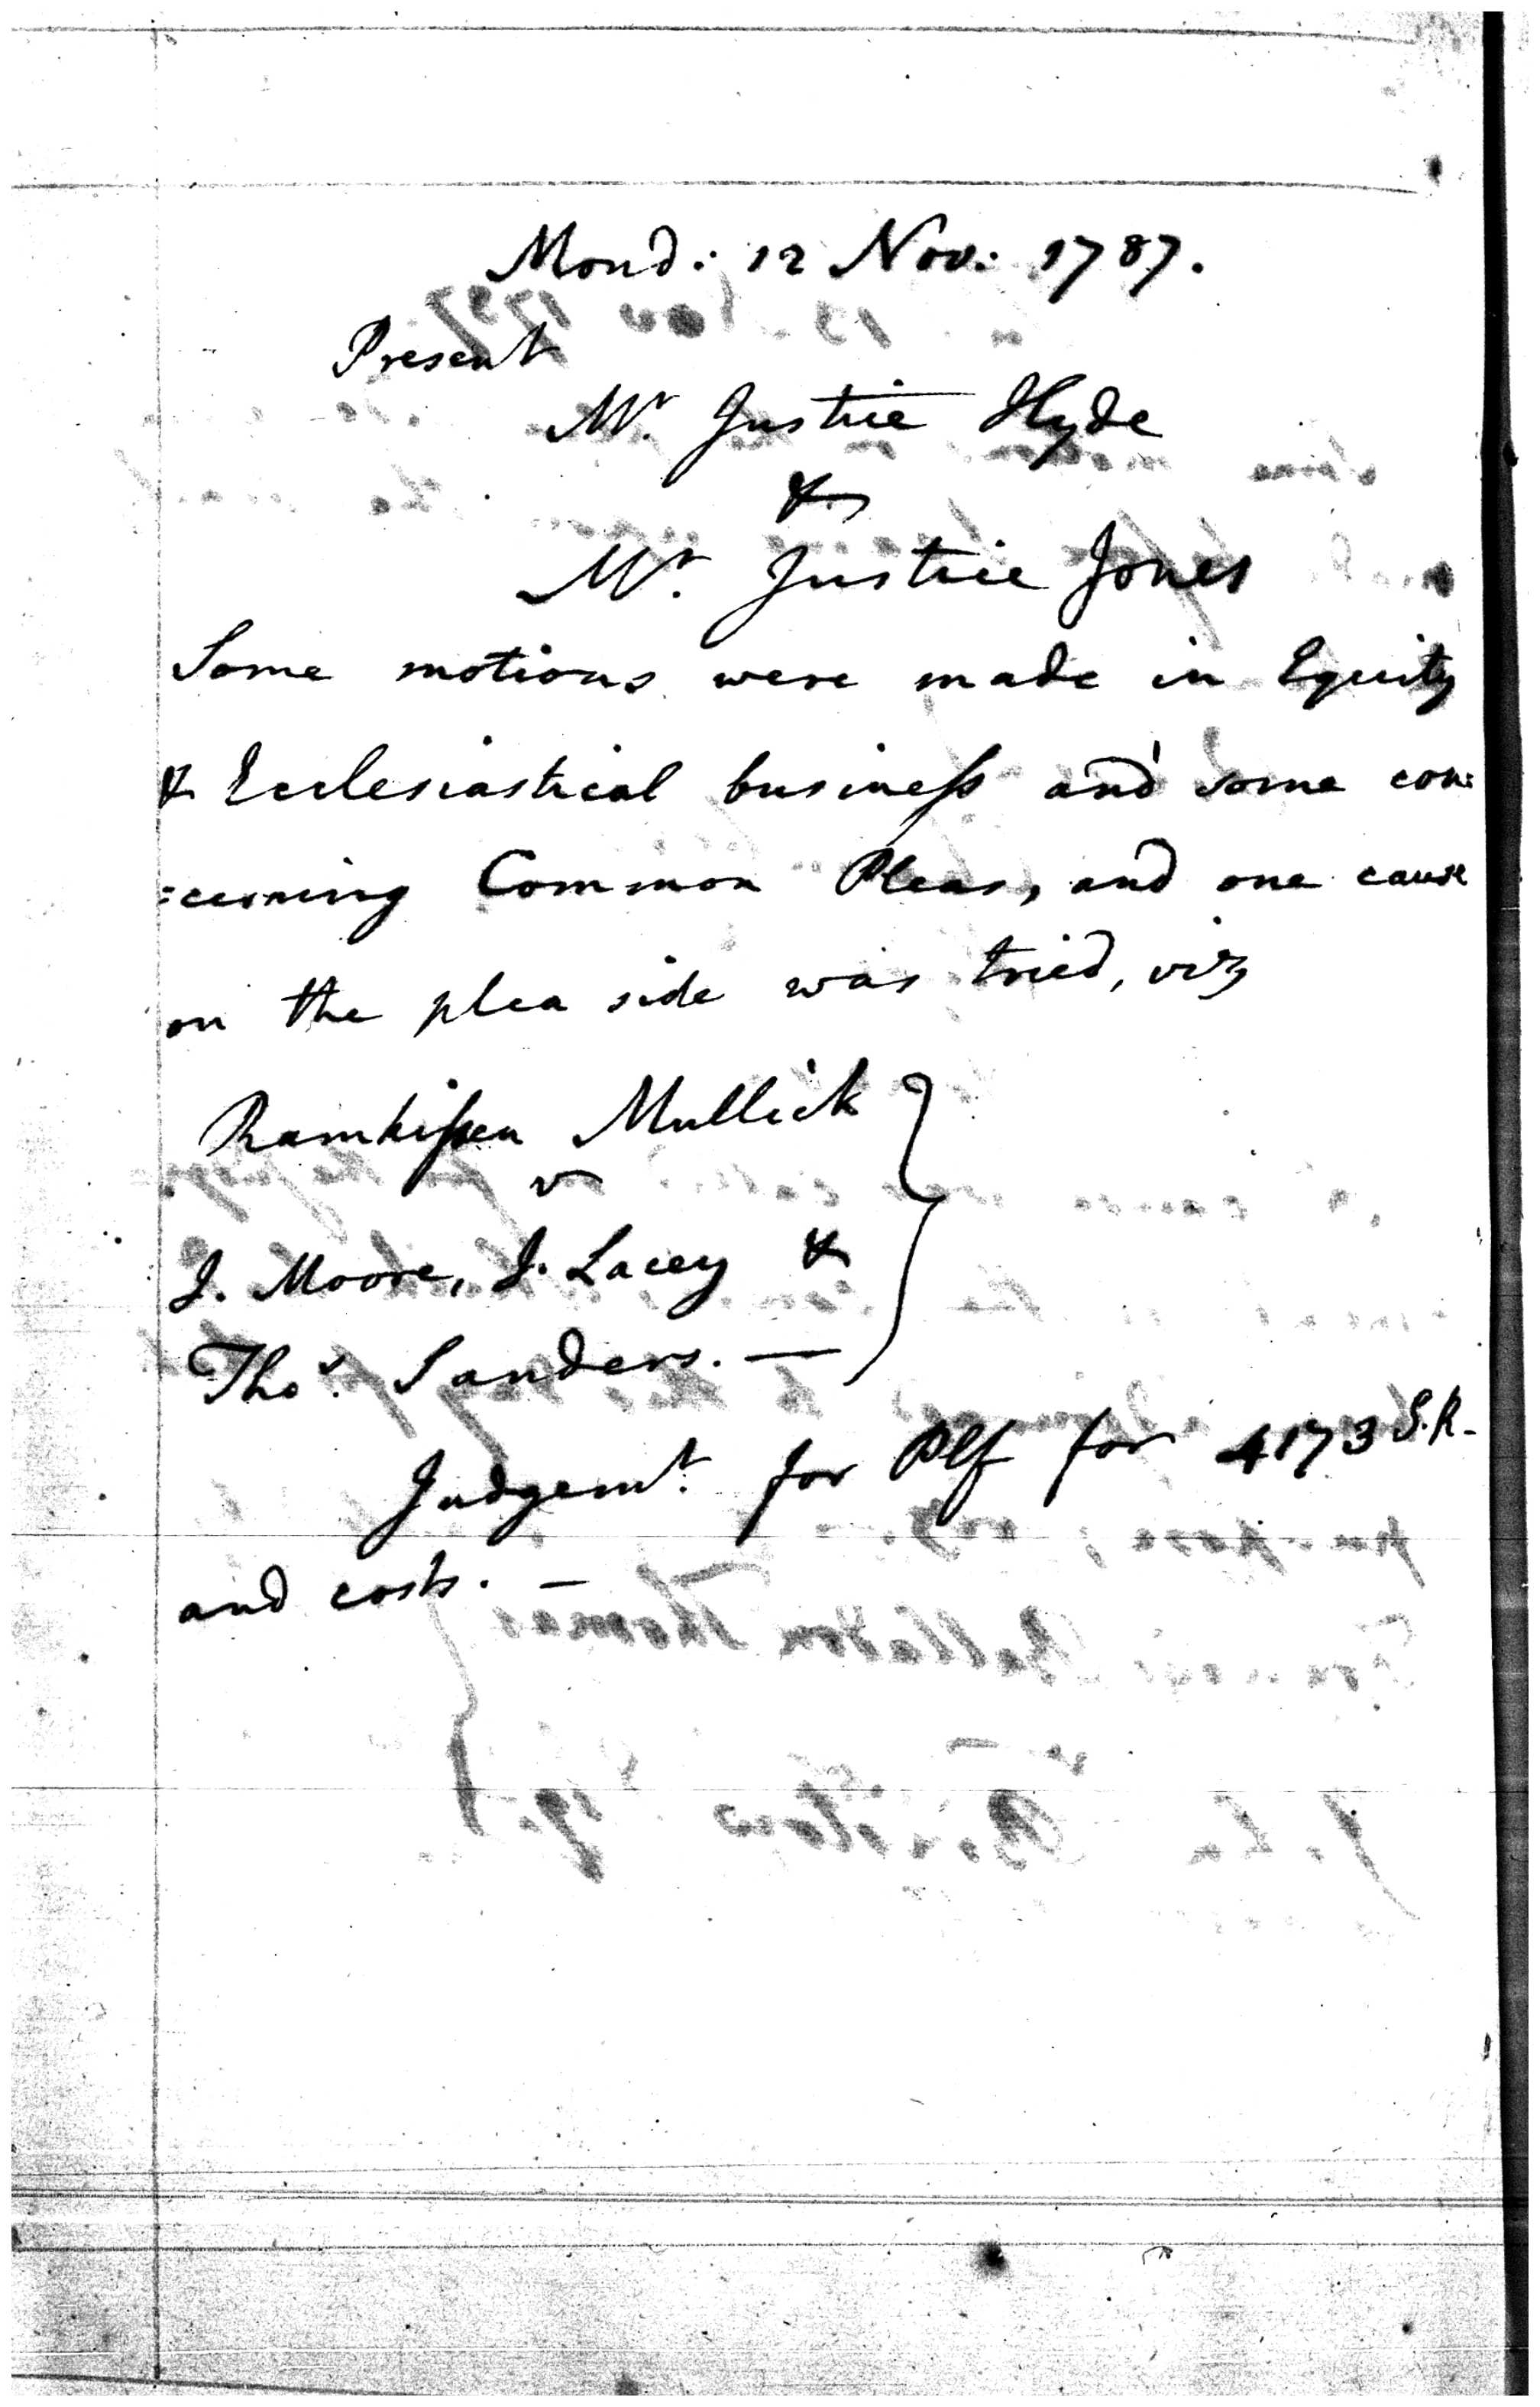 Mond: 12 Nov: 1787.
Present
Mr. Justice Hyde
&
Mr. Justice Jones
Some motions were made in Equity
& Ecclesiastical business and some con:
:cerning Common Pleas, and one cause
on the plea side was tried, viz
Ramkissen Mullick
v
J. Moore, J. Lacey &
Thos. Sanders. —
Judgemt. for Plf for 4173 S.R.
and costs. —